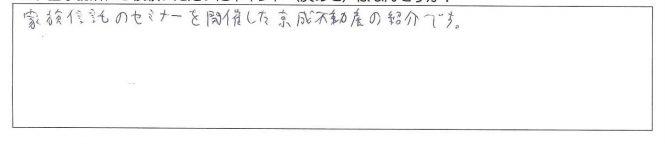 家族信託のセミナーを開催した京成不動産の紹介です。